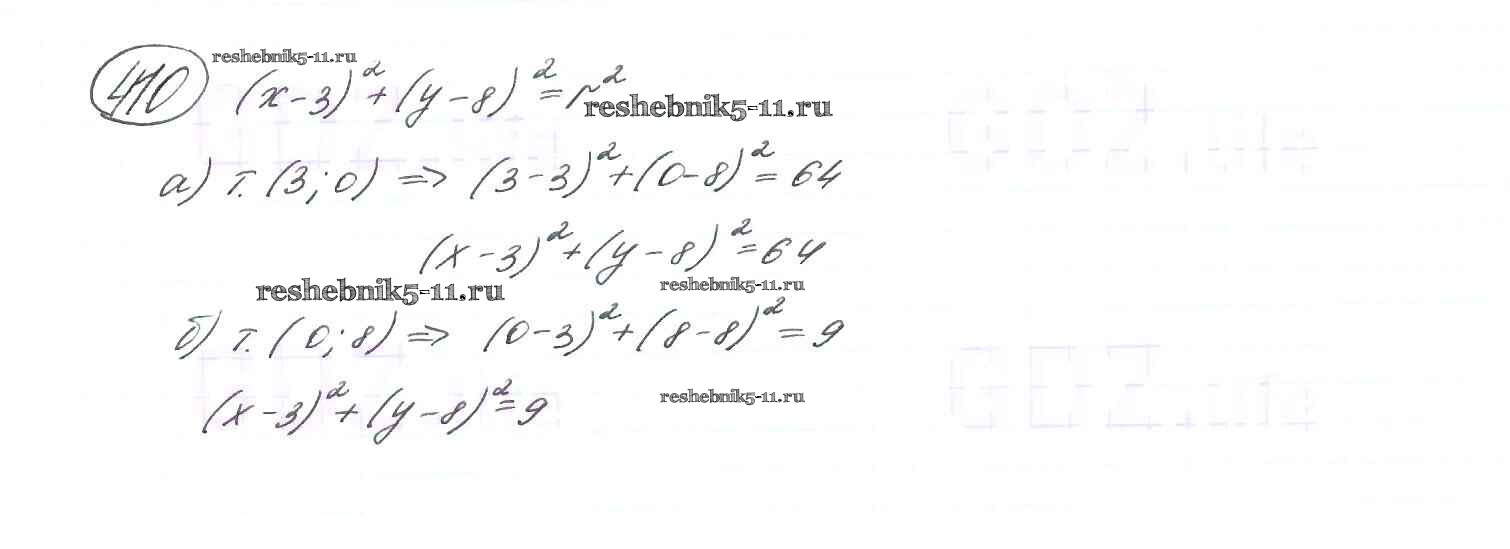 reshebnik5-11.ru
410 (x-3)² + (y-8)² = r²
reshebnik5-11.ru
а) т. (3; 0) => (3-3)² + (0-8)² = 64
(x-3)² + (y-8)² = 64
reshebnik5-11.ru
reshebnik5-11.ru
б) т. (0; 8) => (0-3)² + (8-8)² = 9
(x-3)² + (y-8)² = 9
reshebnik5-11.ru